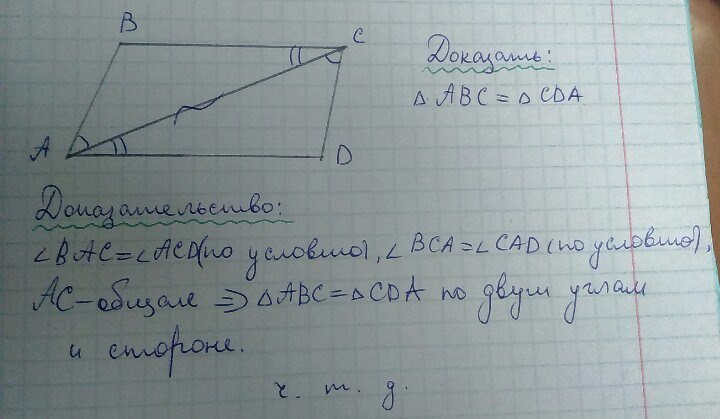 B
C
A
D
Доказать:
△ ABC = △ CDA
Доказательство:
∠BAC=∠ACD(по условию), ∠BCA=∠CAD (по условию),
AC-общая ⇒ △ABC=△CDA по двум углам
и стороне.
ч. т. д.